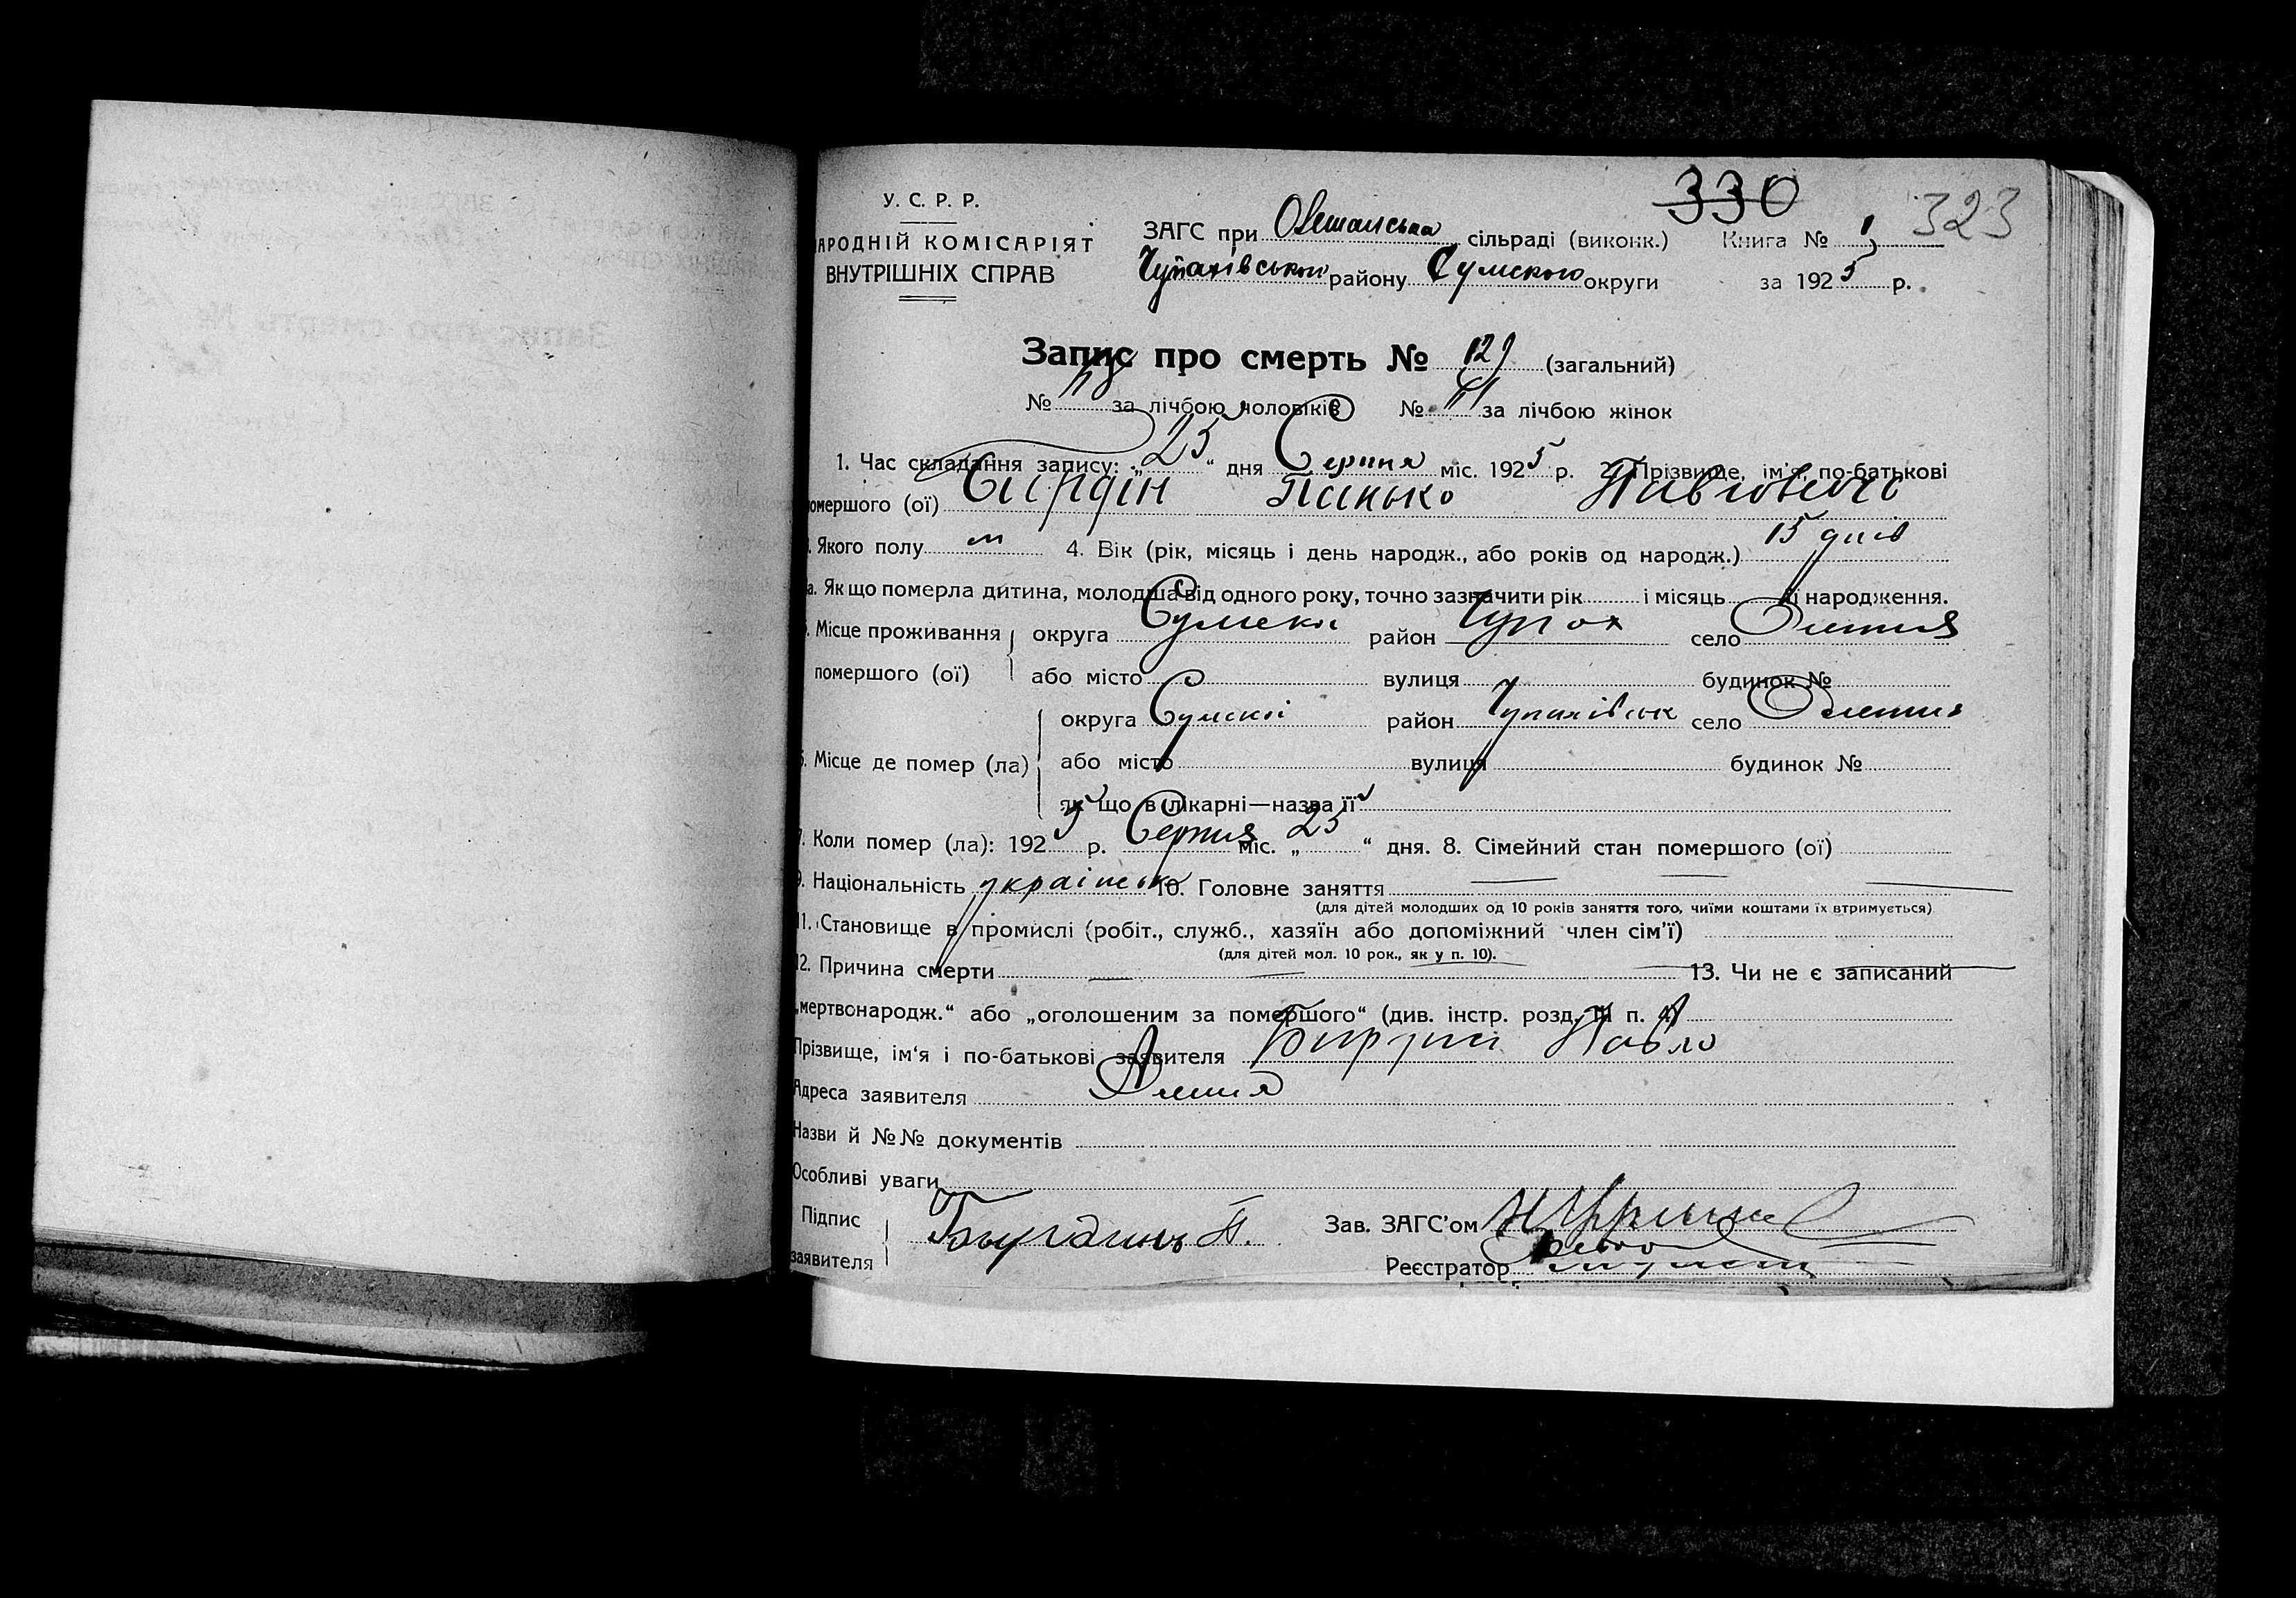 330 323
У. С. Р. Р.
АРОДНІЙ КОМІСАРІЯТ
ВНУТРІШНІХ СПРАВ
ЗАГС при сільраді (виконк.) Книга № 1
Чупахівськой району Сумскою округи за 1925 р.
Запис про смерть № 129 (загальний)
№ за лічбою чоловіків № за лічбою жінок
1. Час складання запису: „25“ дня Серпня міс. 1925 р. 2. Прізвище, ім'я, по-батькові
омершого (ої) Панько Павлович
. Якого полу м 4. Вік (рік, місяць і день народж., або років од народж.) 15 днів
а. Як що померла дитина, молодша від одного року, точно зазначити рік і місяць її народження.
. Місце проживання округа Сумскої район Чупах село
помершого (ої) або місто вулиця будинок №
округа Сумскої район Чупахівськ село
. Місце де помер (ла) або місто вулиця будинок №
як що в лікарні—назва її
. Коли помер (ла): 1925 р. Серпня міс. „25“ дня. 8. Сімейний стан помершого (ої)
9. Національність українсько 10. Головне заняття
(для дітей молодших од 10 років заняття того, чиїми коштами їх втримується)
11. Становище в промислі (робіт., служб., хазяїн або допоміжний член сім'ї)
(для дітей мол. 10 рок., як у п. 10).
12. Причина смерти 13. Чи не є записаний
„мертвонародж.“ або „оголошеним за помершого“ (див. інстр. розд. III п.
Прізвище, ім'я і по-батькові заявителя Павло
Адреса заявителя
Назви й №№ документів
Особливі уваги
Підпис
заявителя П.
Зав. ЗАГС'ом
Реєстратор